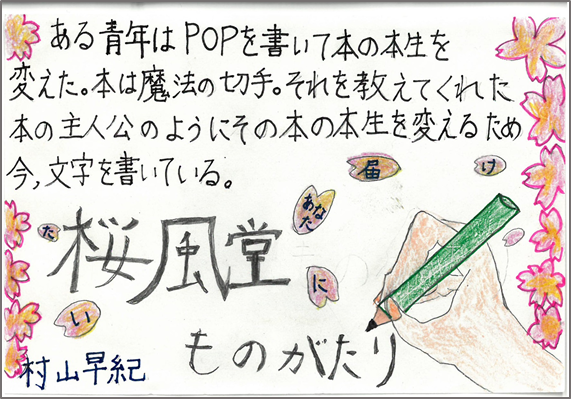 ある青年はPOPを書いて本の本生を
変えた。本は魔法の切手。それを教えてくれた
本の主人公のようにその本の本生を変えるため
今,文字を書いている。
届
け
あなた
に
た
い
桜風堂
ものがたり
村山早紀